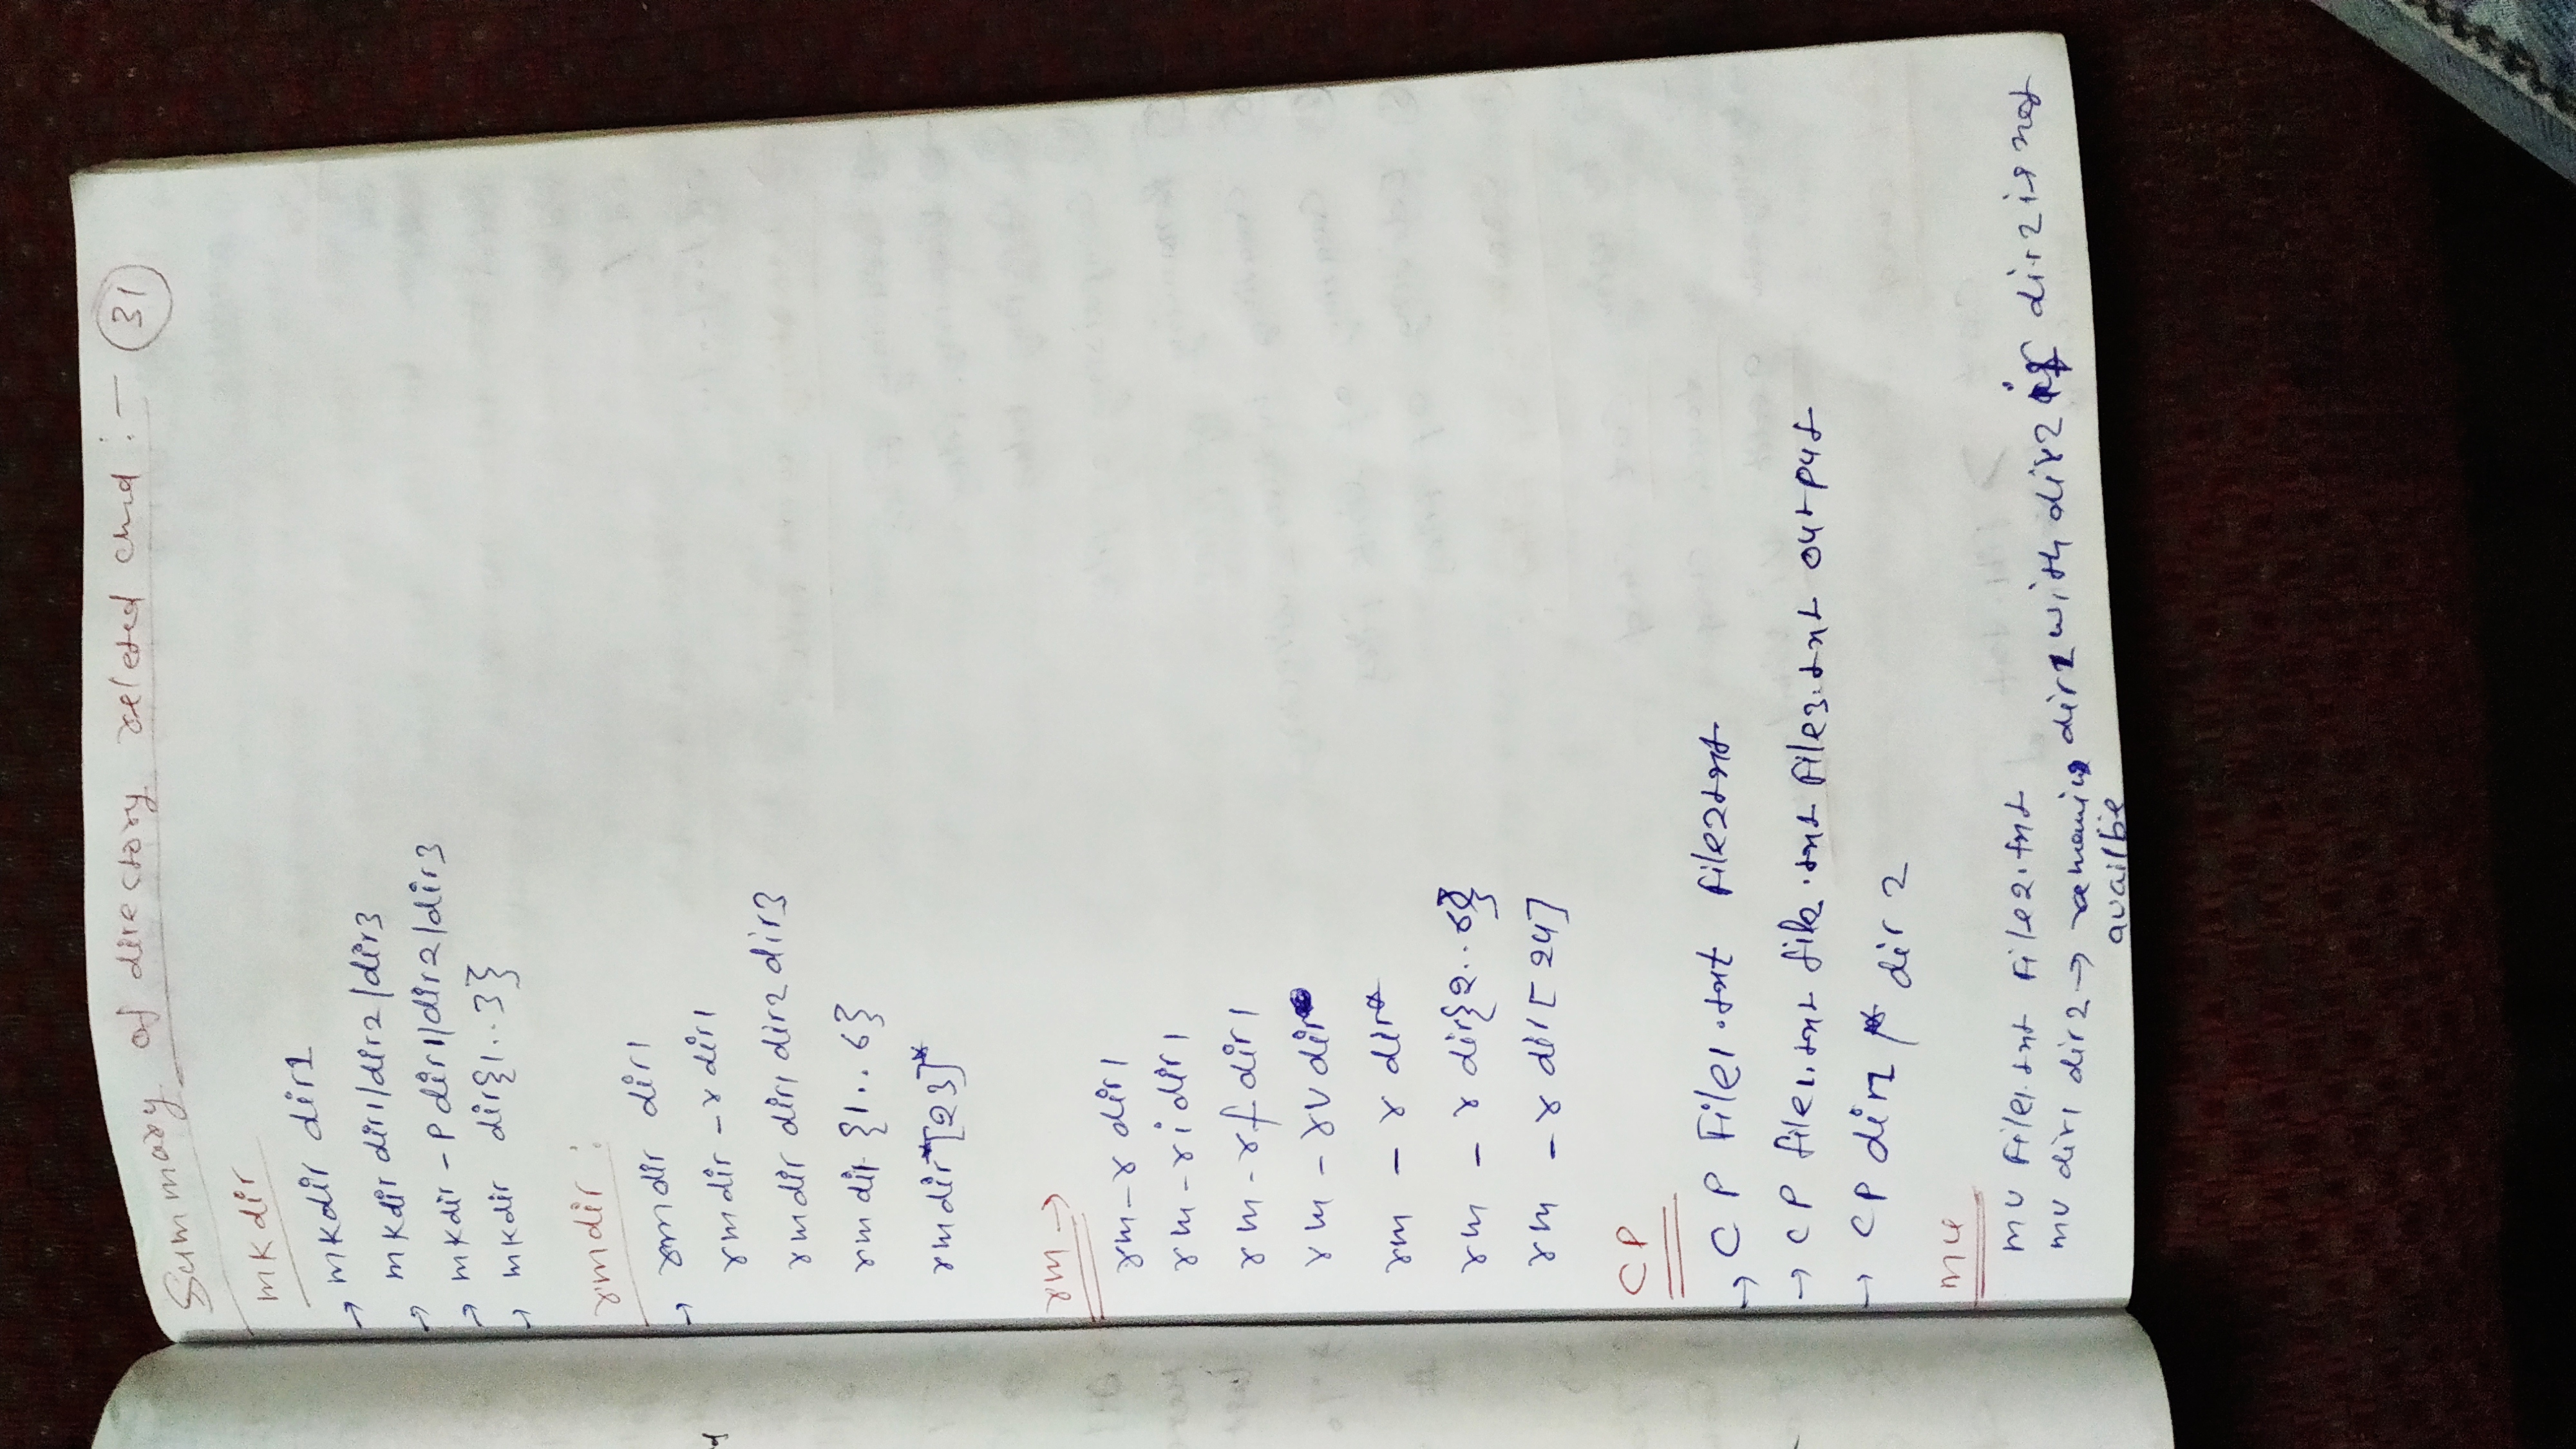 Summary of directory releted cmd :- 31
mkdir
→ mkdir dir1
→ mkdir dir1/dir2/dir3
→ mkdir -P dir1/dir2/dir3
→ mkdir dir{1..3}
rmdir :
→ rmdir dir1
rmdir -r dir1
rmdir dir1 dir2 dir3
rmdir {1..6}
rmdir*[23]*
rm →
rm -r dir1
rm -ri dir1
rm -rf dir1
rm -rv dir
rm -r dir*
rm -r dir{2..6}
rm -r dir[24]
CP
→ CP File1.txt file2txt
→ CP file1.txt file2.txt File3.txt output
→ CP dir1/* dir2
mv
mv File1.txt File2.txt
mv dir1 dir2 → dir1 with dir2 if dir2 is not
availbe